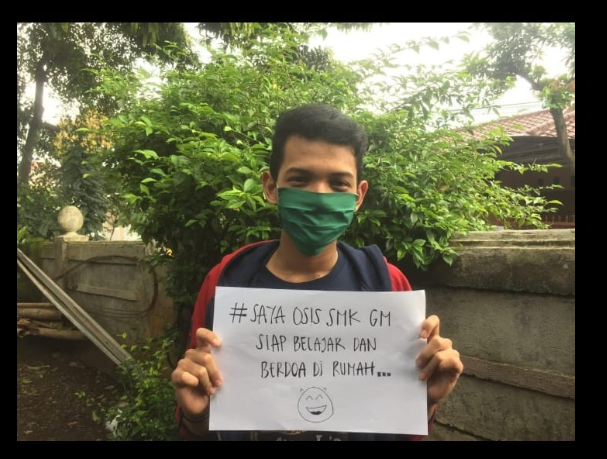 #SAYA OSIS SMK GM
SIAP BELAJAR DAN
BERDOA DI RUMAH...